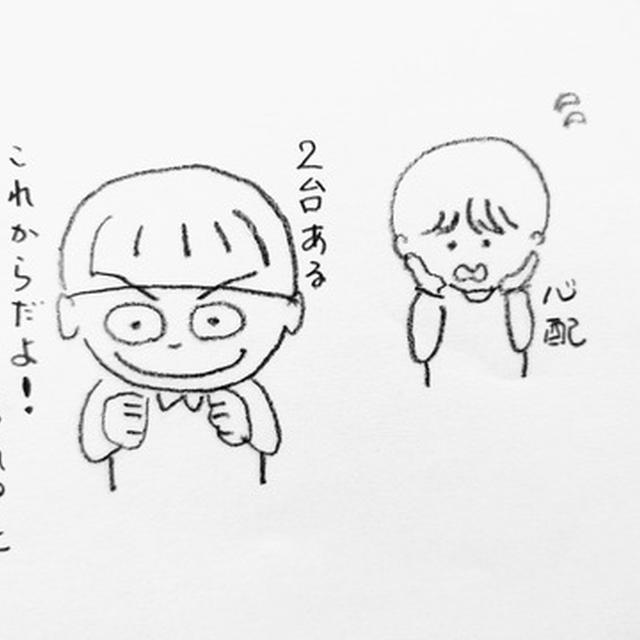 心配
2台ある
これからだよ!